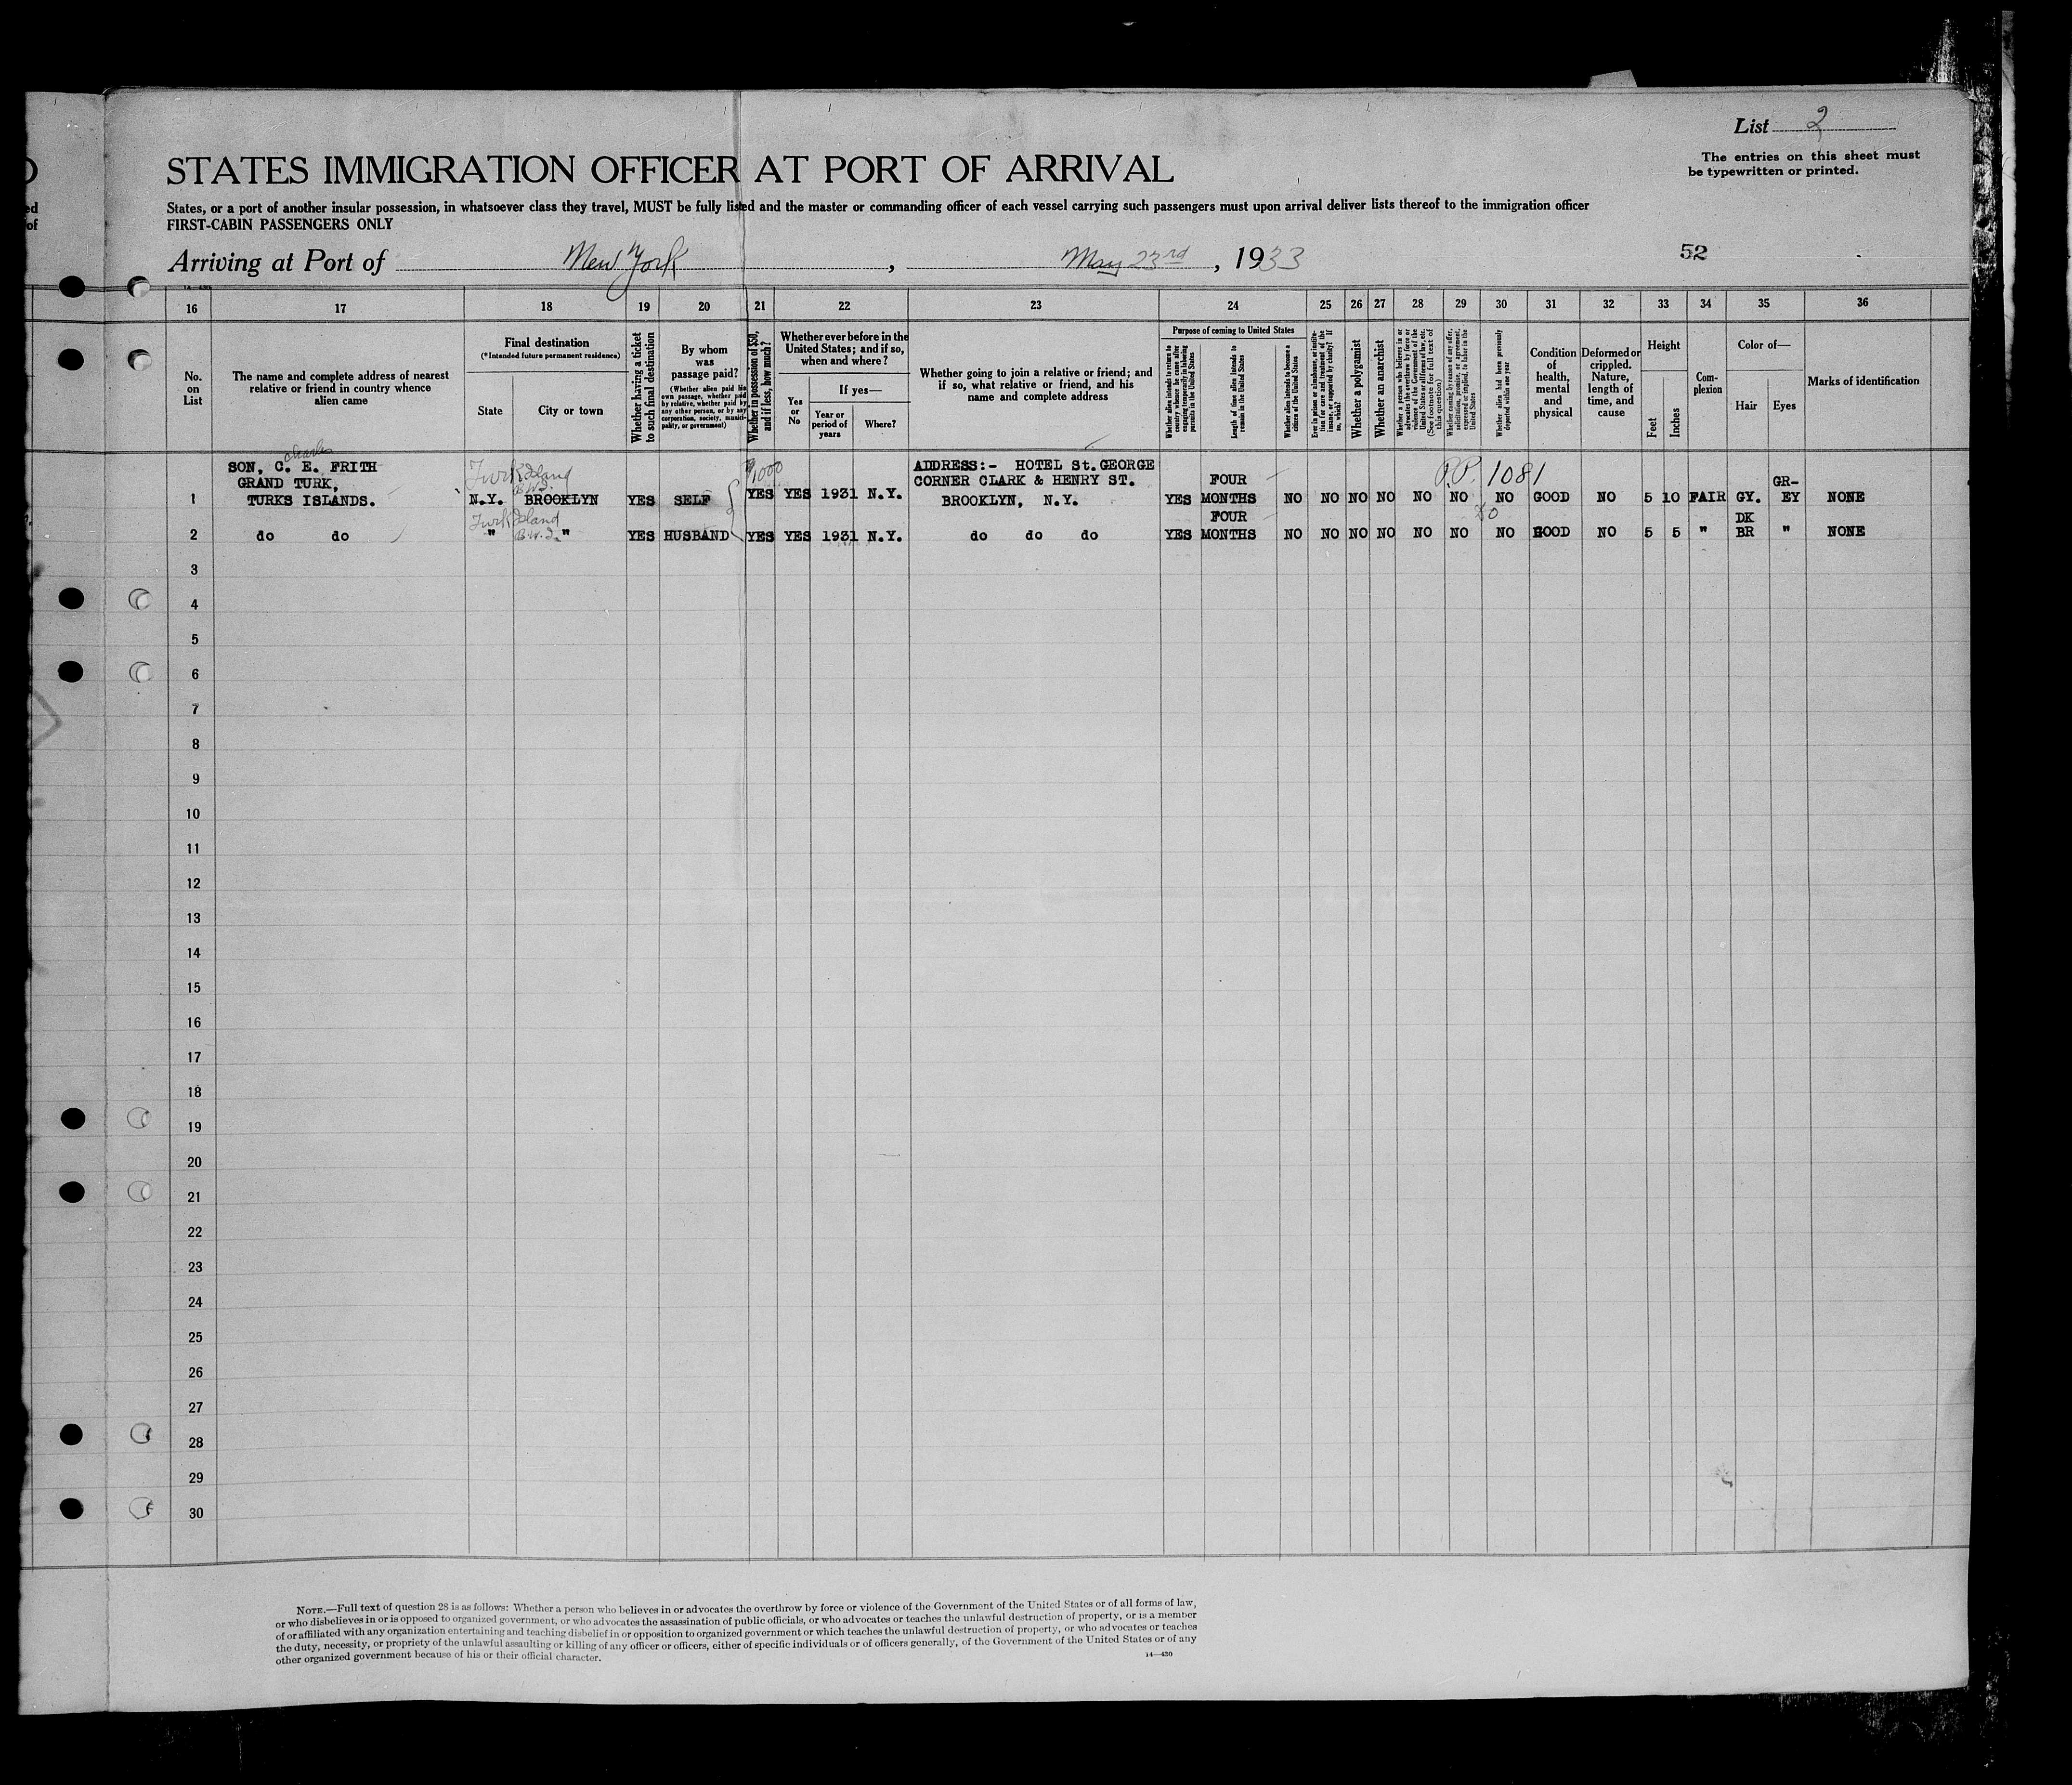 List 2
The entries on this sheet must
be typewritten or printed.
STATES IMMIGRATION OFFICER AT PORT OF ARRIVAL
States, or a port of another insular possession, in whatsoever class they travel, MUST be fully listed and the master or commanding officer of each vessel carrying such passengers must upon arrival deliver lists thereof to the immigration officer
FIRST-CABIN PASSENGERS ONLY
Arriving at Port of New York, May 23rd, 1933
52
16 17 18 19 20 21 22 23 24 25 26 27 28 29 30 31 32 33 34 35 36
No.
on
List
The name and complete address of nearest
relative or friend in country whence
alien came
Final destination
(*Intended future permanent residence)
State
City or town
Whether having a ticket
to such final destination
By whom
was
passage paid?
(Whether alien paid his
own passage, whether paid
by relative, whether paid by
any other person, or by any
corporation, society, munici-
pality, or government)
Whether in possession of $50,
and if less, how much?
Whether ever before in the
United States; and if so,
when and where?
If yes—
Yes
or
No
Year or
period of
years
Where?
Whether going to join a relative or friend; and
if so, what relative or friend, and his
name and complete address
Purpose of coming to United States
Whether alien intends to return to
country whence he came after
engaging temporarily in laboring
pursuits in the United States
Length of time alien intends to
remain in the United States
Whether alien intends to become a
citizen of the United States
Ever in prison or almshouse, or institu-
tion for care and treatment of the
insane, or supported by charity? If
so, which?
Whether a polygamist
Whether an anarchist
Whether a person who believes in or
advocates the overthrow by force or
violence of the Government of the
United States or all forms of law, etc.
(See footnote for full text of
this question)
Whether coming by reason of any offer,
solicitation, promise, or agreement,
expressed or implied, to labor in the
United States
Whether alien had been previously
deported within one year
Condition
of
health,
mental
and
physical
Deformed or
crippled.
Nature,
length of
time, and
cause
Height
Feet
Inches
Com-
plexion
Color of—
Hair
Eyes
Marks of identification
Charles
SON, C. E. FRITH
GRAND TURK,
TURKS ISLANDS.
Turk Island
B.W.I.
$1000
ADDRESS:- HOTEL St. GEORGE
CORNER CLARK & HENRY ST.
BROOKLYN, N.Y.
P.P. 1081
1 N.Y. BROOKLYN YES SELF YES YES 1931 N.Y. YES FOUR MONTHS NO NO NO NO NO NO NO GOOD NO 5 10 FAIR GY. GR-EY NONE
Turk Island
B.W.I.
do
2 do do " " YES HUSBAND YES YES 1931 N.Y. do do do YES FOUR MONTHS NO NO NO NO NO NO NO GOOD NO 5 5 " DK BR " NONE
3
4
5
6
7
8
9
10
11
12
13
14
15
16
17
18
19
20
21
22
23
24
25
26
27
28
29
30
NOTE.—Full text of question 28 is as follows: Whether a person who believes in or advocates the overthrow by force or violence of the Government of the United States or of all forms of law,
or who disbelieves in or is opposed to organized government, or who advocates the assassination of public officials, or who advocates or teaches the unlawful destruction of property, or is a member
of or affiliated with any organization entertaining and teaching disbelief in or opposition to organized government or which teaches the unlawful destruction of property, or who advocates or teaches
the duty, necessity, or propriety of the unlawful assaulting or killing of any officer or officers, either of specific individuals or of officers generally, of the Government of the United States or of any
other organized government because of his or their official character.
14—430